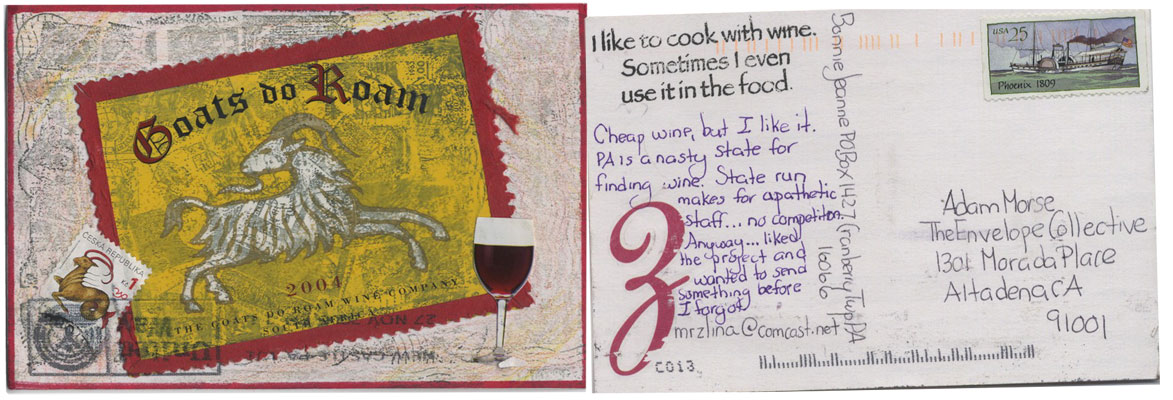 Goats do Roam
2004
THE GOATS DO ROAM WINE COMPANY
SOUTH AFRICA
ČESKÁ REPUBLIKA
Kč 1
27 NOV
NEW CASTLE PA
I like to cook with wine.
Sometimes I even
use it in the food.
Cheap wine, but I like it.
PA is a nasty state for
finding wine. State run
makes for apathetic
staff... no competition.
Anyway... liked
the project and
wanted to send
something before
I forgot
Z
mrzlina@comcast.net
C013
Bonnie Jeanne PO Box 1427 Cranberry Twp PA
16066
USA 25
Phoenix 1809
Adam Morse
The Envelope Collective
1301 Morada Place
Altadena CA
91001